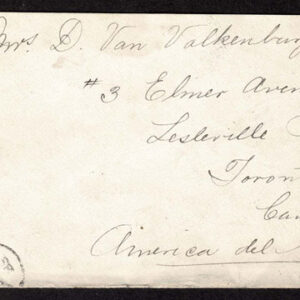 Mrs. D. Van Valkenburg
#3 Elmer Aven
Lesterville
Toron
Ca
America del